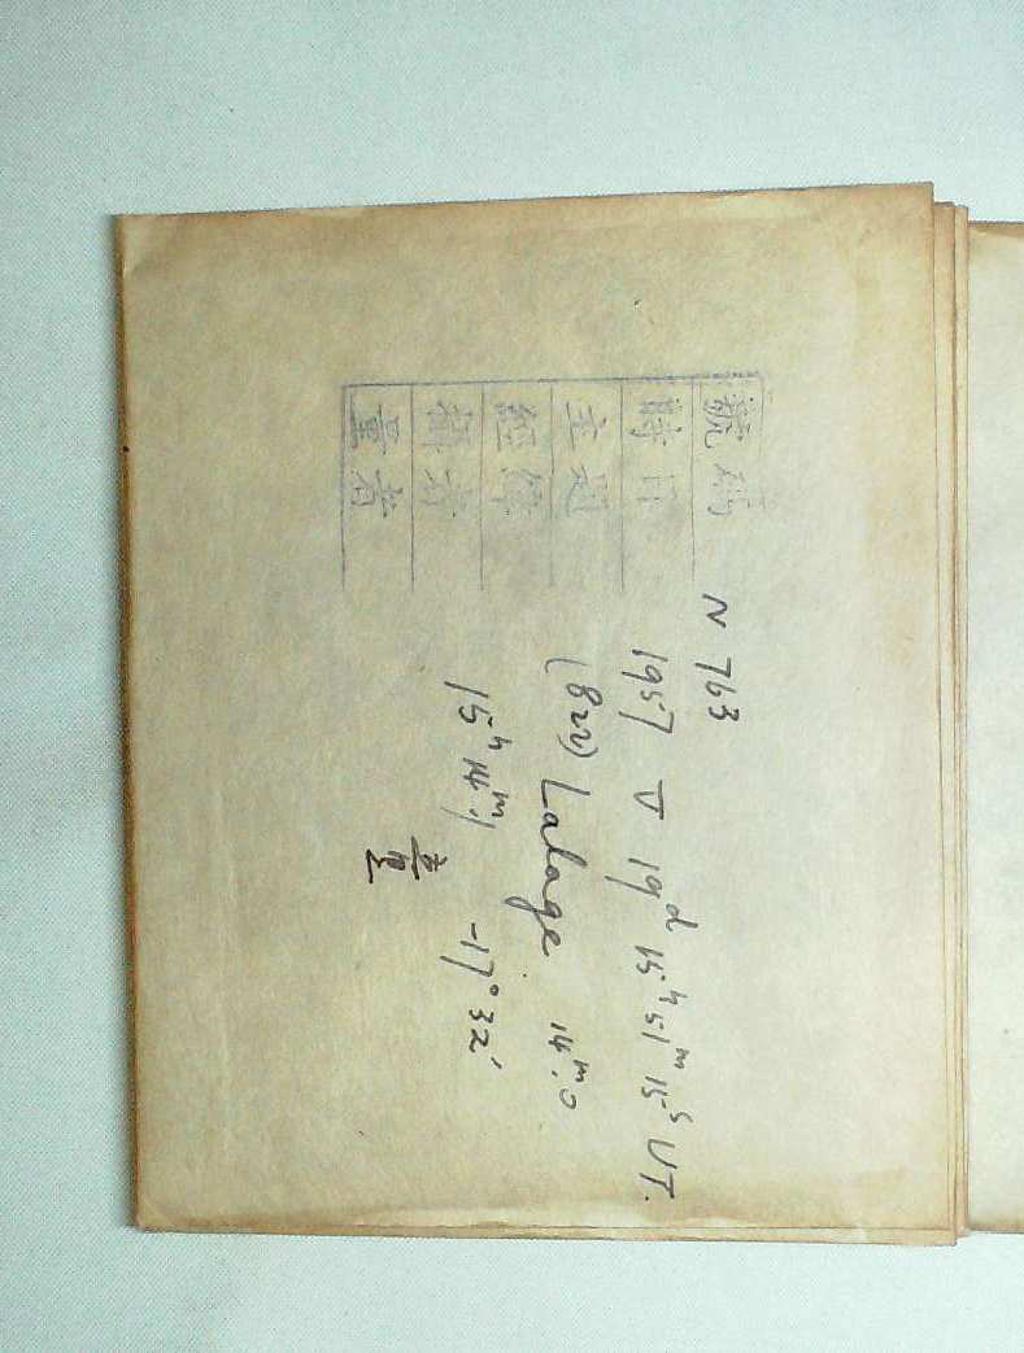 號碼 N 763
時日 1957 V 19ᵈ 15ʰ 51ᵐ 15ˢ UT.
主題 (822) Lalage 14ᵐ.0
經緯 15ʰ 14ᵐ.1 -17° 32'
攝者
量者